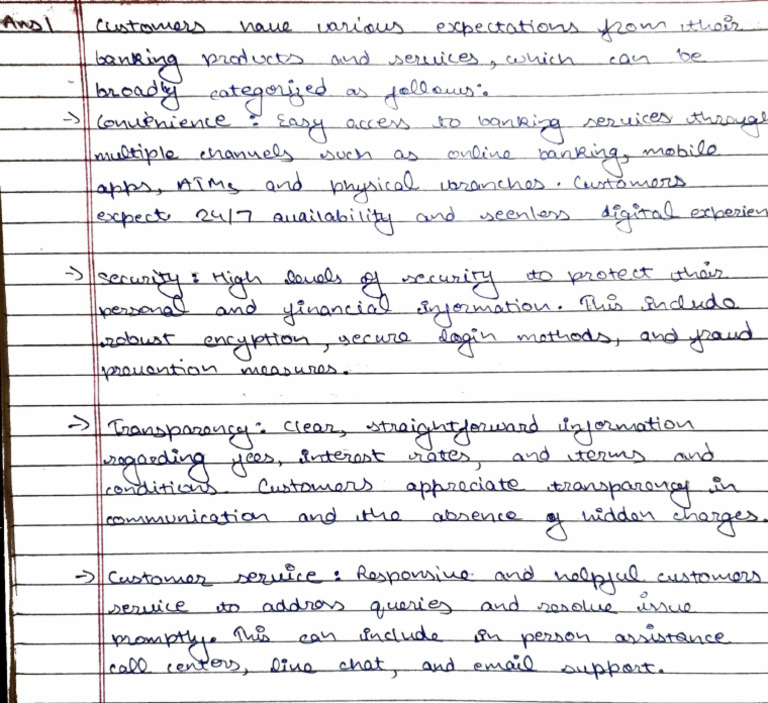 Ans1 Customers have various expectations from their
banking products and services, which can be
broadly categorized as follows:
-> Convenience : Easy access to banking services through
multiple channels such as online banking, mobile
apps, ATMs and physical branches. Customers
expect 24/7 availability and seenless digital experien
-> Security : High levels of security to protect their
personal and financial information. This include
robust encyption, secure login methods, and fraud
prevention measures.
-> Transparency : Clear, straightforward information
regarding fees, interest rates, and terms and
conditions. Customers appreciate transparency in
communication and the absence of hidden charges.
-> Customer service : Responsive and helpful customers
service to address queries and resolve issue
promptly. This can include in person assistance
call centers, live chat, and email support.